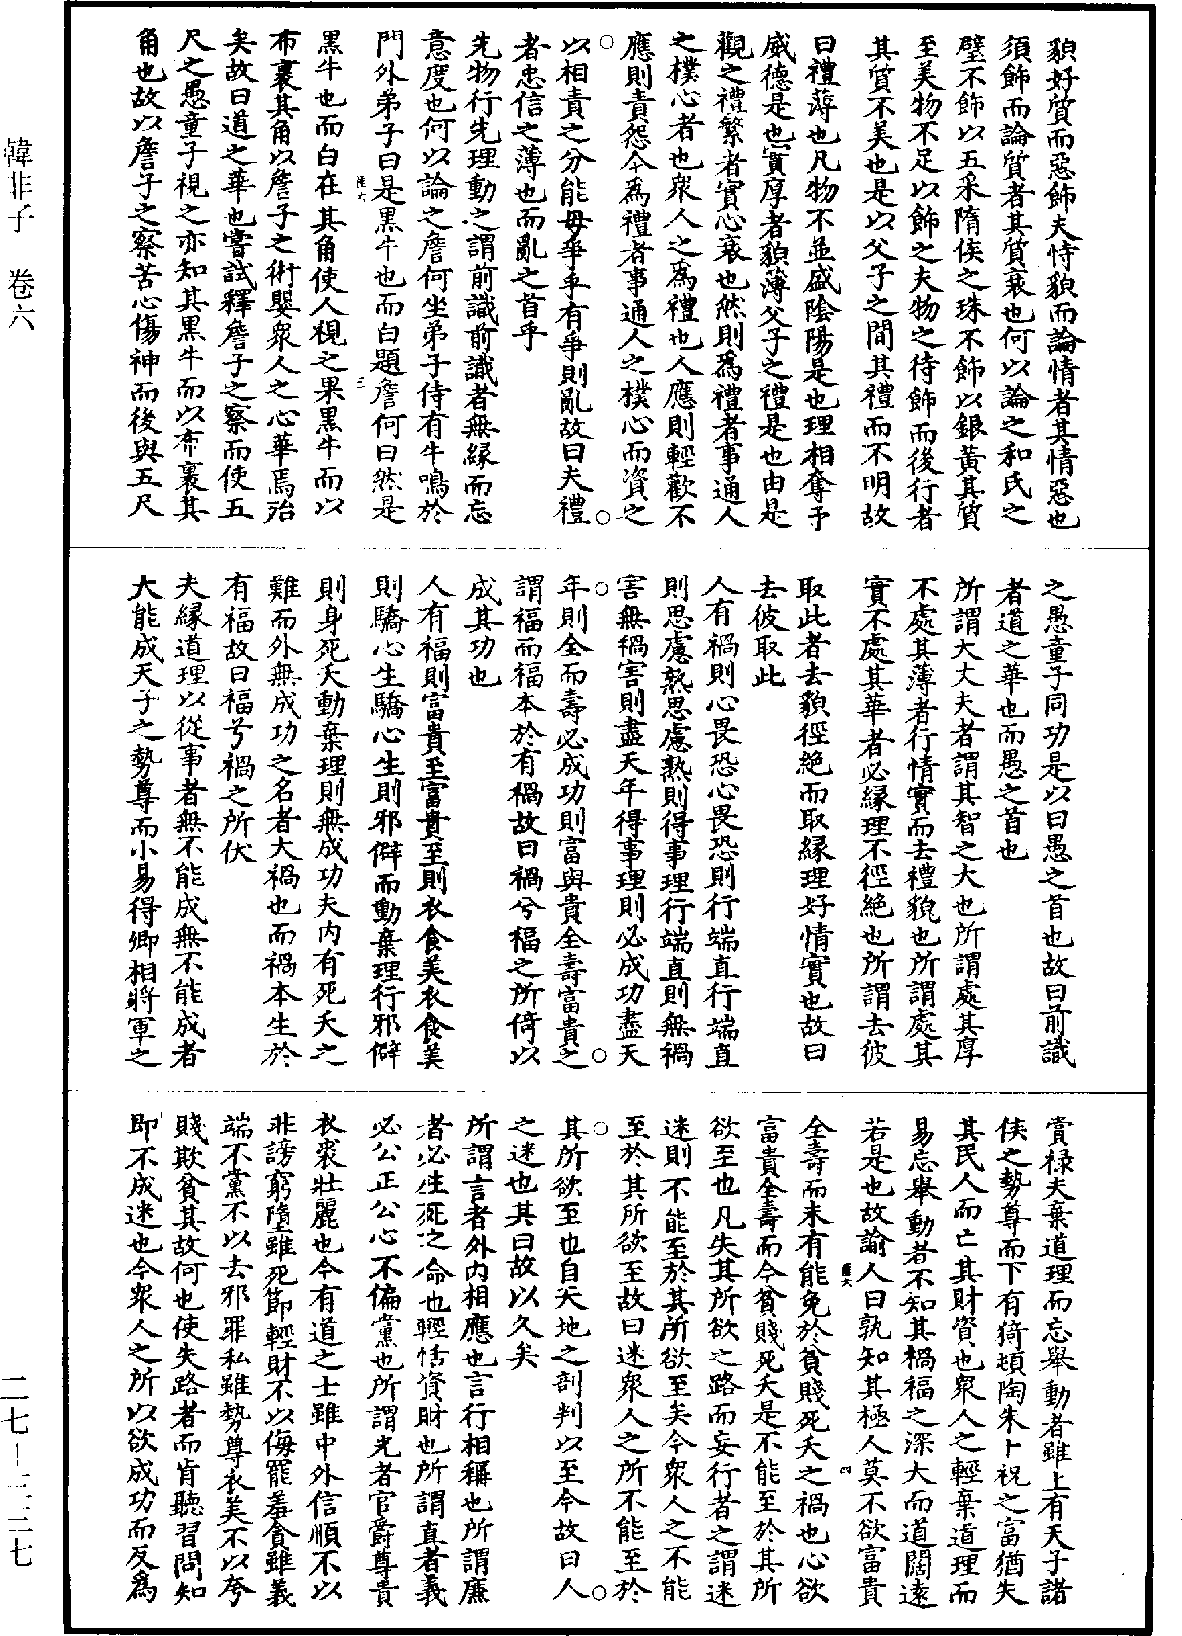 貌好質而惡飾夫恃貌而論情者其情惡也
須飾而論質者其質衰也何以論之和氏之
璧不飾以五采隋侯之珠不飾以銀黃其質
至美物不足以飾之夫物之待飾而後行者
其質不美也是以父子之間其禮而不明故
曰禮薄也凡物不並盛陰陽是也理相奪予
威德是也實厚者貌薄父子之禮是也由是
觀之禮繁者實心衰也然則爲禮者事通人
之樸心者也衆人之爲禮也人應則輕歡不
應則責怨今爲禮者事通人之樸心而資之
以相責之分能毋爭乎有爭則亂故曰夫禮
者忠信之薄也而亂之首乎
先物行先理動之謂前識前識者無緣而忘
意度也何以論之詹何坐弟子侍有牛鳴於
門外弟子曰是黑牛也而白題詹何曰然是
黑牛也而白在其角使人視之果黑牛而以
布裹其角以詹子之術嬰衆人之心華焉殆
矣故曰道之華也嘗試釋詹子之察而使五
尺之愚童子視之亦知其黑牛而以布裹其
角也故以詹子之察苦心傷神而後與五尺
之愚童子同功是以曰愚之首也故曰前識
者道之華也而愚之首也
所謂大丈夫者謂其智之大也所謂處其厚
不處其薄者行情實而去禮貌也所謂處其
實不處其華者必緣理不徑絶也所謂去彼
取此者去貌徑絶而取緣理好情實也故曰
去彼取此
人有禍則心畏恐心畏恐則行端直行端直
則思慮熟思慮熟則得事理行端直則無禍
害無禍害則盡天年得事理則必成功盡天
年則全而壽必成功則富與貴全壽富貴之
謂福而福本於有禍故曰禍兮福之所倚以
成其功也
人有福則富貴至富貴至則衣食美衣食美
則驕心生驕心生則邪僻而動棄理行邪僻
則身死夭動棄理則無成功夫内有死夭之
難而外無成功之名者大禍也而禍本生於
有福故曰福兮禍之所伏
夫緣道理以從事者無不能成無不能成者
大能成天子之勢尊而小易得卿相將軍之
賞祿夫棄道理而忘舉動者雖上有天子諸
侯之勢尊而下有猗頓陶朱卜祝之富猶失
其民人而亡其財資也衆人之輕棄道理而
易忘舉動者不知其禍福之深大而道闊遠
若是也故諭人曰孰知其極人莫不欲富貴
全壽而未有能免於貧賤死夭之禍也心欲
富貴全壽而今貧賤死夭是不能至於其所
欲至也凡失其所欲之路而妄行者之謂迷
迷則不能至於其所欲至矣今衆人之不能
至於其所欲至故曰迷衆人之所不能至於
其所欲至也自天地之剖判以至今故曰人
之迷也其日故以久矣
所謂言者外内相應也言行相稱也所謂廉
者必生死之命也輕恬資財也所謂直者義
必公正公心不偏黨也所謂光者官爵尊貴
衣裘壯麗也今有道之士雖中外信順不以
非謗窮墮雖死節輕財不以侮罷羞貪雖義
端不黨不以去邪罪私雖勢尊衣美不以夸
賤欺貧其故何也使失路者而肯聽習問知
即不成迷也今衆人之所以欲成功而反爲
韓非子 卷六
二七－三三七